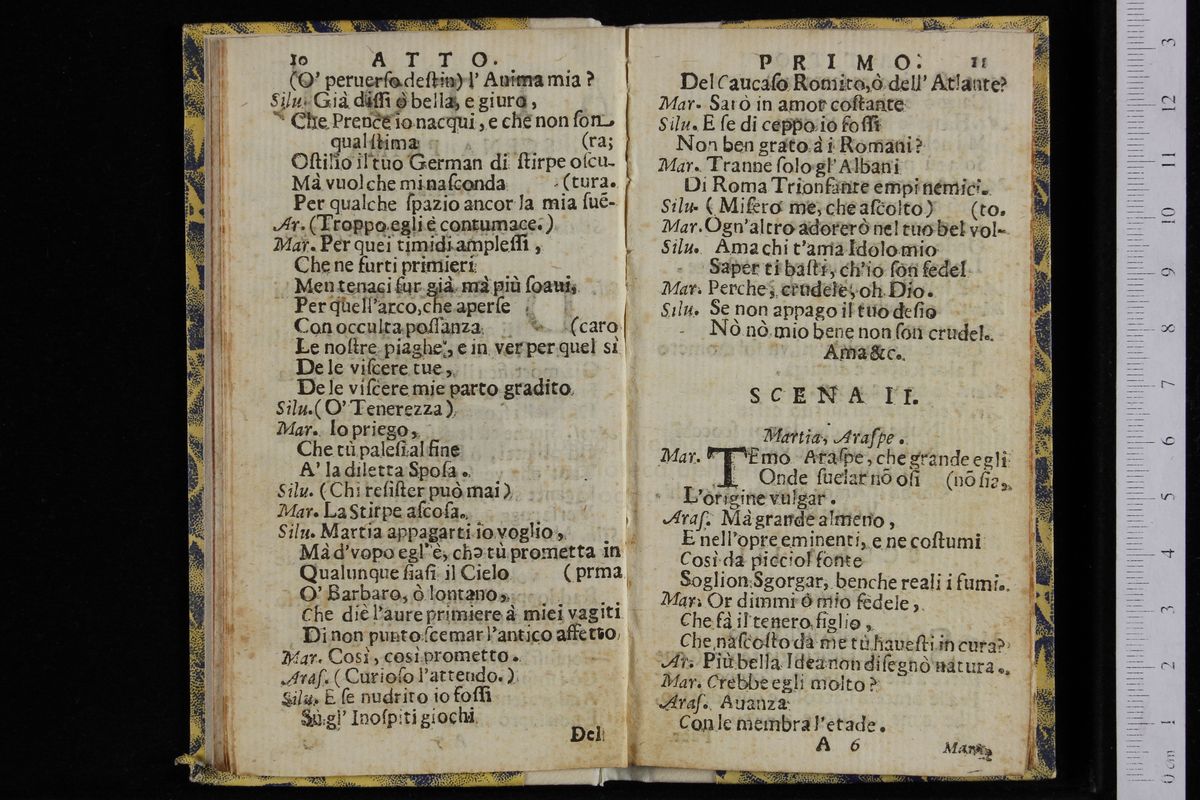 10 ATTO.
(O' peruerſo deſtin) l' Anima mia ?
Silu. Già diſſi ò bella, e giuro,
Che Prence io nacqui, e che non ſon
qual ſtima (ra;
Oſtilio il tuo German di ſtirpe oſcu-
Mà vuol che mi naſconda (tura.
Per qualche ſpazio ancor la mia ſuẽ-
Ar. (Troppo egli è contumace.)
Mar. Per quei timidi ampleſſi,
Che ne furti primieri
Men tenaci fur già mà più ſoaui,
Per quell'arco, che aperſe
Con occulta poſſanza (caro
Le noſtre piaghe, e in ver per quel sì
De le viſcere tue,
De le viſcere mie parto gradito
Silu. (O' Tenerezza)
Mar. Io priego,
Che tù paleſi al fine
A' la diletta Spoſa.
Silu. (Chi reſiſter può mai)
Mar. La Stirpe aſcoſa.
Silu. Martia appagarti io voglio,
Mà d'vopo egl' è, che tù prometta in
Qualunque ſiaſi il Cielo (prma
O' Barbaro, ò lontano,
Che diè l'aure primiere à miei vagiti
Di non punto ſcemar l'antico affetto
Mar. Così, così prometto.
Araſ. (Curioſo l'attendo.)
Silu. E ſe nudrito io foſſi
Sù gl' Inoſpiti giochi
Del
PRIMO. 11
Del Caucaſo Romito, ò dell' Atlante?
Mar. Sarò in amor coſtante
Silu. E ſe di ceppo io foſſi
Non ben grato à i Romani?
Mar. Tranne ſolo gl' Albani
Di Roma Trionfante empi nemici.
Silu. (Miſero me, che aſcolto) (to.
Mar. Ogn'altro adorerò nel tuo bel vol-
Silu. Ama chi t'ama Idolo mio
Saper ti baſti, ch'io ſon fedel
Mar. Perche, crudele, oh Dio.
Silu. Se non appago il tuo deſio
Nò nò mio bene non ſon crudel.
Ama &c.
SCENA II.
Martia, Araſpe.
Mar. TEmo Araſpe, che grande egli
Onde ſuelar nõ oſi (nõ ſia,
L'origine vulgar.
Araſ. Mà grande almeno,
E nell'opre eminenti, e ne coſtumi
Così da picciol fonte
Soglion Sgorgar, benche reali i fiumi.
Mar. Or dimmi ò mio fedele,
Che fà il tenero figlio,
Che naſcoſto da me tù haueſti in cura?
Ar. Più bella Idea non diſegnò natura.
Mar. Crebbe egli molto?
Araſ. Auanza
Con le membra l'etade.
A 6 Mar.
0 cm 1 2 3 4 5 6 7 8 9 10 11 12 3